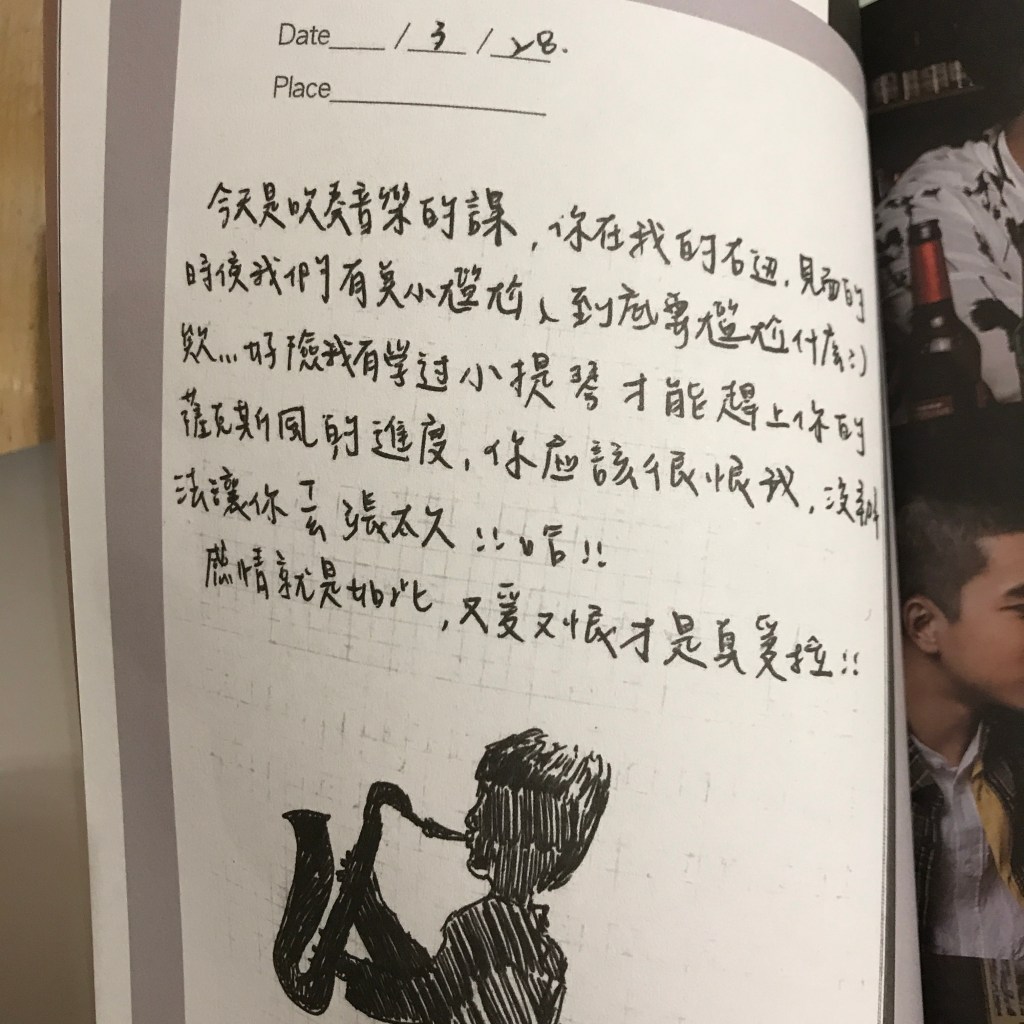 Date /3/28.
Place
今天是吹奏音樂的課,你在我的右边,見面的
時候我們有莫小尷尬、到底要尷尬什麼:)
欸...好險我有學过小提琴才能趕上你的
薩克斯風的進度,你應該很恨我,沒辦
法讓你丅玄張太久!!哈!!
感情就是如此,又愛又恨才是真愛拉!!